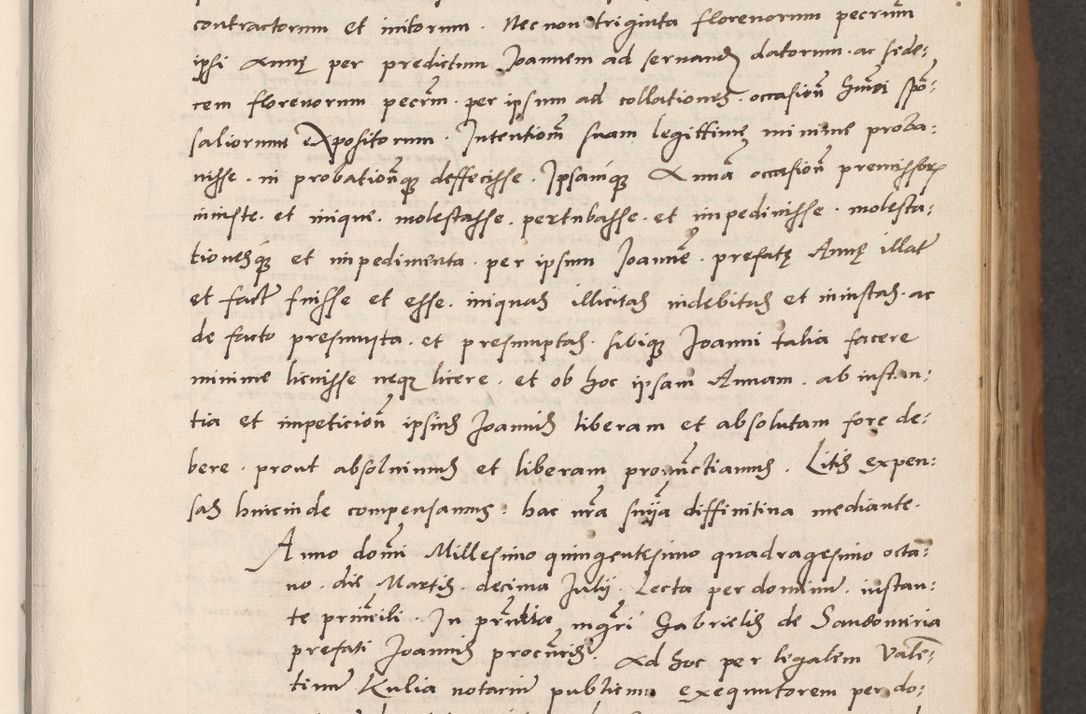 contractorum et initorum . Nec non triginta florenorum pecrum
ipsi Annę per predictum Joannem ad servand datorum . ac sede:
cem florenorum pecrm . per ipsum ad collationes . occasion hmoi spo:
saliorum expositorum . Intentionm suam legittime minime proba:
visse . in probationque deffecisse . Ipsamque Annā occasion premissor
iniuste . et inique . molestasse . perturbasse . et impedivisse . molesta:
tionesque et impedimenta . per ipsum Joannē . prefatę Annę illat
et fact fuisse et esse . iniquas illicitas indebitas et iniustas . ac
de facto presumpta . et presumptas . sibique Joanni talia facere
minime licuisse neque licere . et ob hoc ipsam Annam . ab instan:
tia et impeticion ipsius Joannis liberam et absolutam fore de:
bere . prout absolvimus et liberam pronunctiamus . Litis expen:
sas hincinde compensamus . hac nra snia diffinitiva mediante .
Anno domi Millesimo quingentesimo quadragesimo octa:
vo . die Martis . decima Julij . Lecta per dominum . instan:
te princili . In prntia mgri Gabrielis de Sandomiria
prefati Joannis procuris . Ad hoc per legalem Valen:
tinum Kulia notarium publicum exequutorem per do: